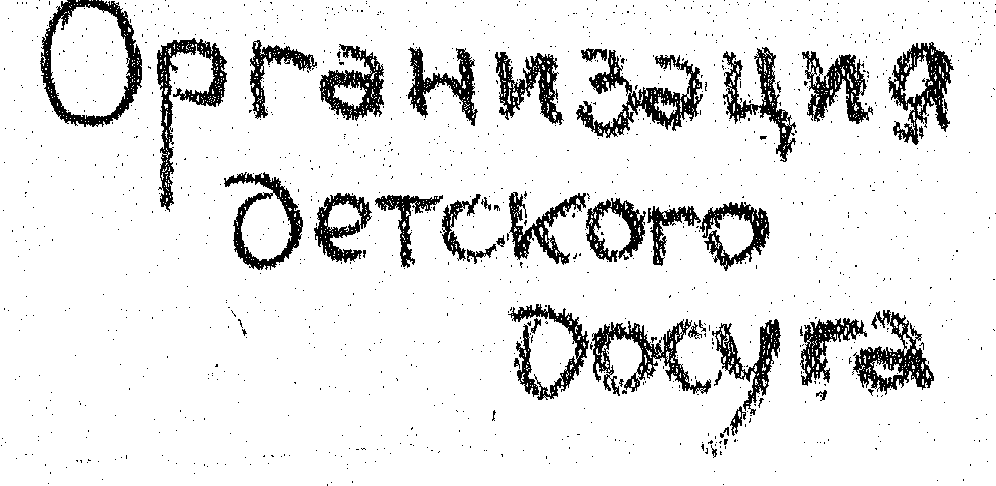 Организация
детского
досуга